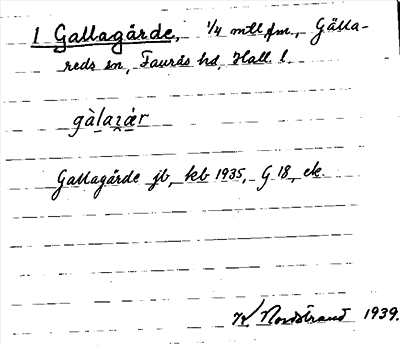 1 Gallagärde, 1/4 mtl fm., Gälla-
reds sn, Faurås hd, Hall. l.
gàlaʒär
Gallagärde jb, kb 1935, G 18, ek.
W Nordstrand 1939.